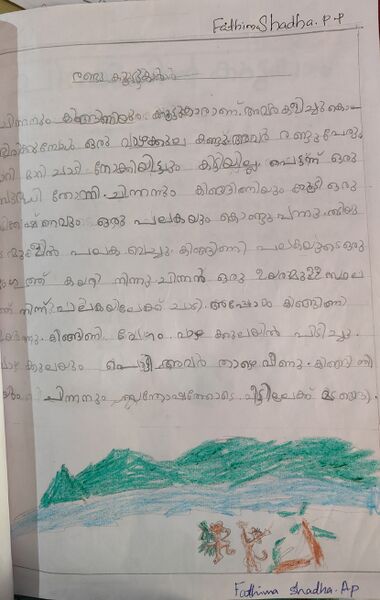 Fathima Shadha. P.P
രണ്ടു കൂട്ടുകാർ
ചിന്നനും കിങ്ങിണിയും കൂട്ടുകാരാണ്. അവർ കളിച്ചു കൊ-
ഒരു വാഴക്കുല കണ്ടു. അവർ രണ്ടുപേരും
ചാടി നോക്കിയിട്ടും കിട്ടിയില്ല. പെട്ടന്ന് ഒരു
തോന്നി. ചിന്നനും കിങ്ങിണിയും കൂടി ഒരു
ഒരു പലകയും കൊണ്ടുവന്നു.
പലക വെച്ചു. കിങ്ങിണി പലകയുടെ ഒരു
കയറി നിന്നു. ചിന്നൻ ഒരു ഉയരമുള്ള സ്ഥല
നിന്ന് പലകയിലേക്ക് ചാടി. അപ്പോൾ കിങ്ങിണി
കിങ്ങിണി വേഗം വാഴ ക്കുലയിൽ പിടിച്ചു.
ക്കുലയും പൊട്ടി അവർ താഴെ വീണു. കിങ്ങി ണി
ചിന്നനും സന്തോഷത്തോടെ വീട്ടിലേക്ക് മടങ്ങി.
Fathima Shadha. A p